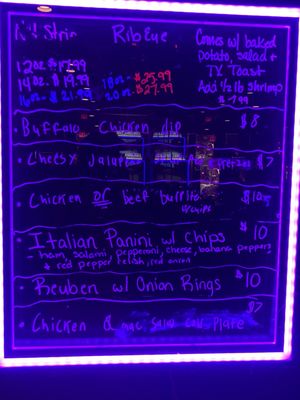 N.Y Strip RibEye
Comes w/ baked
potato, salad +
TX Toast
12oz $17.99
14oz. $19.99 18oz - $25.99
16oz - $21.99 20oz. $27.99
Add 1/2 lb shrimp
$7.99
• Buffalo Chicken dip $8
• Cheesy Jalapeno pretzels $7
• Chicken or beef burrito $10
w/chips
• Italian Panini w/ Chips $10
- ham, salami, pepperoni, cheese, banana peppers
+ red pepper relish, red onion
• Reuben w/ Onion Rings $10
• Chicken & mac salad cold Plate $7